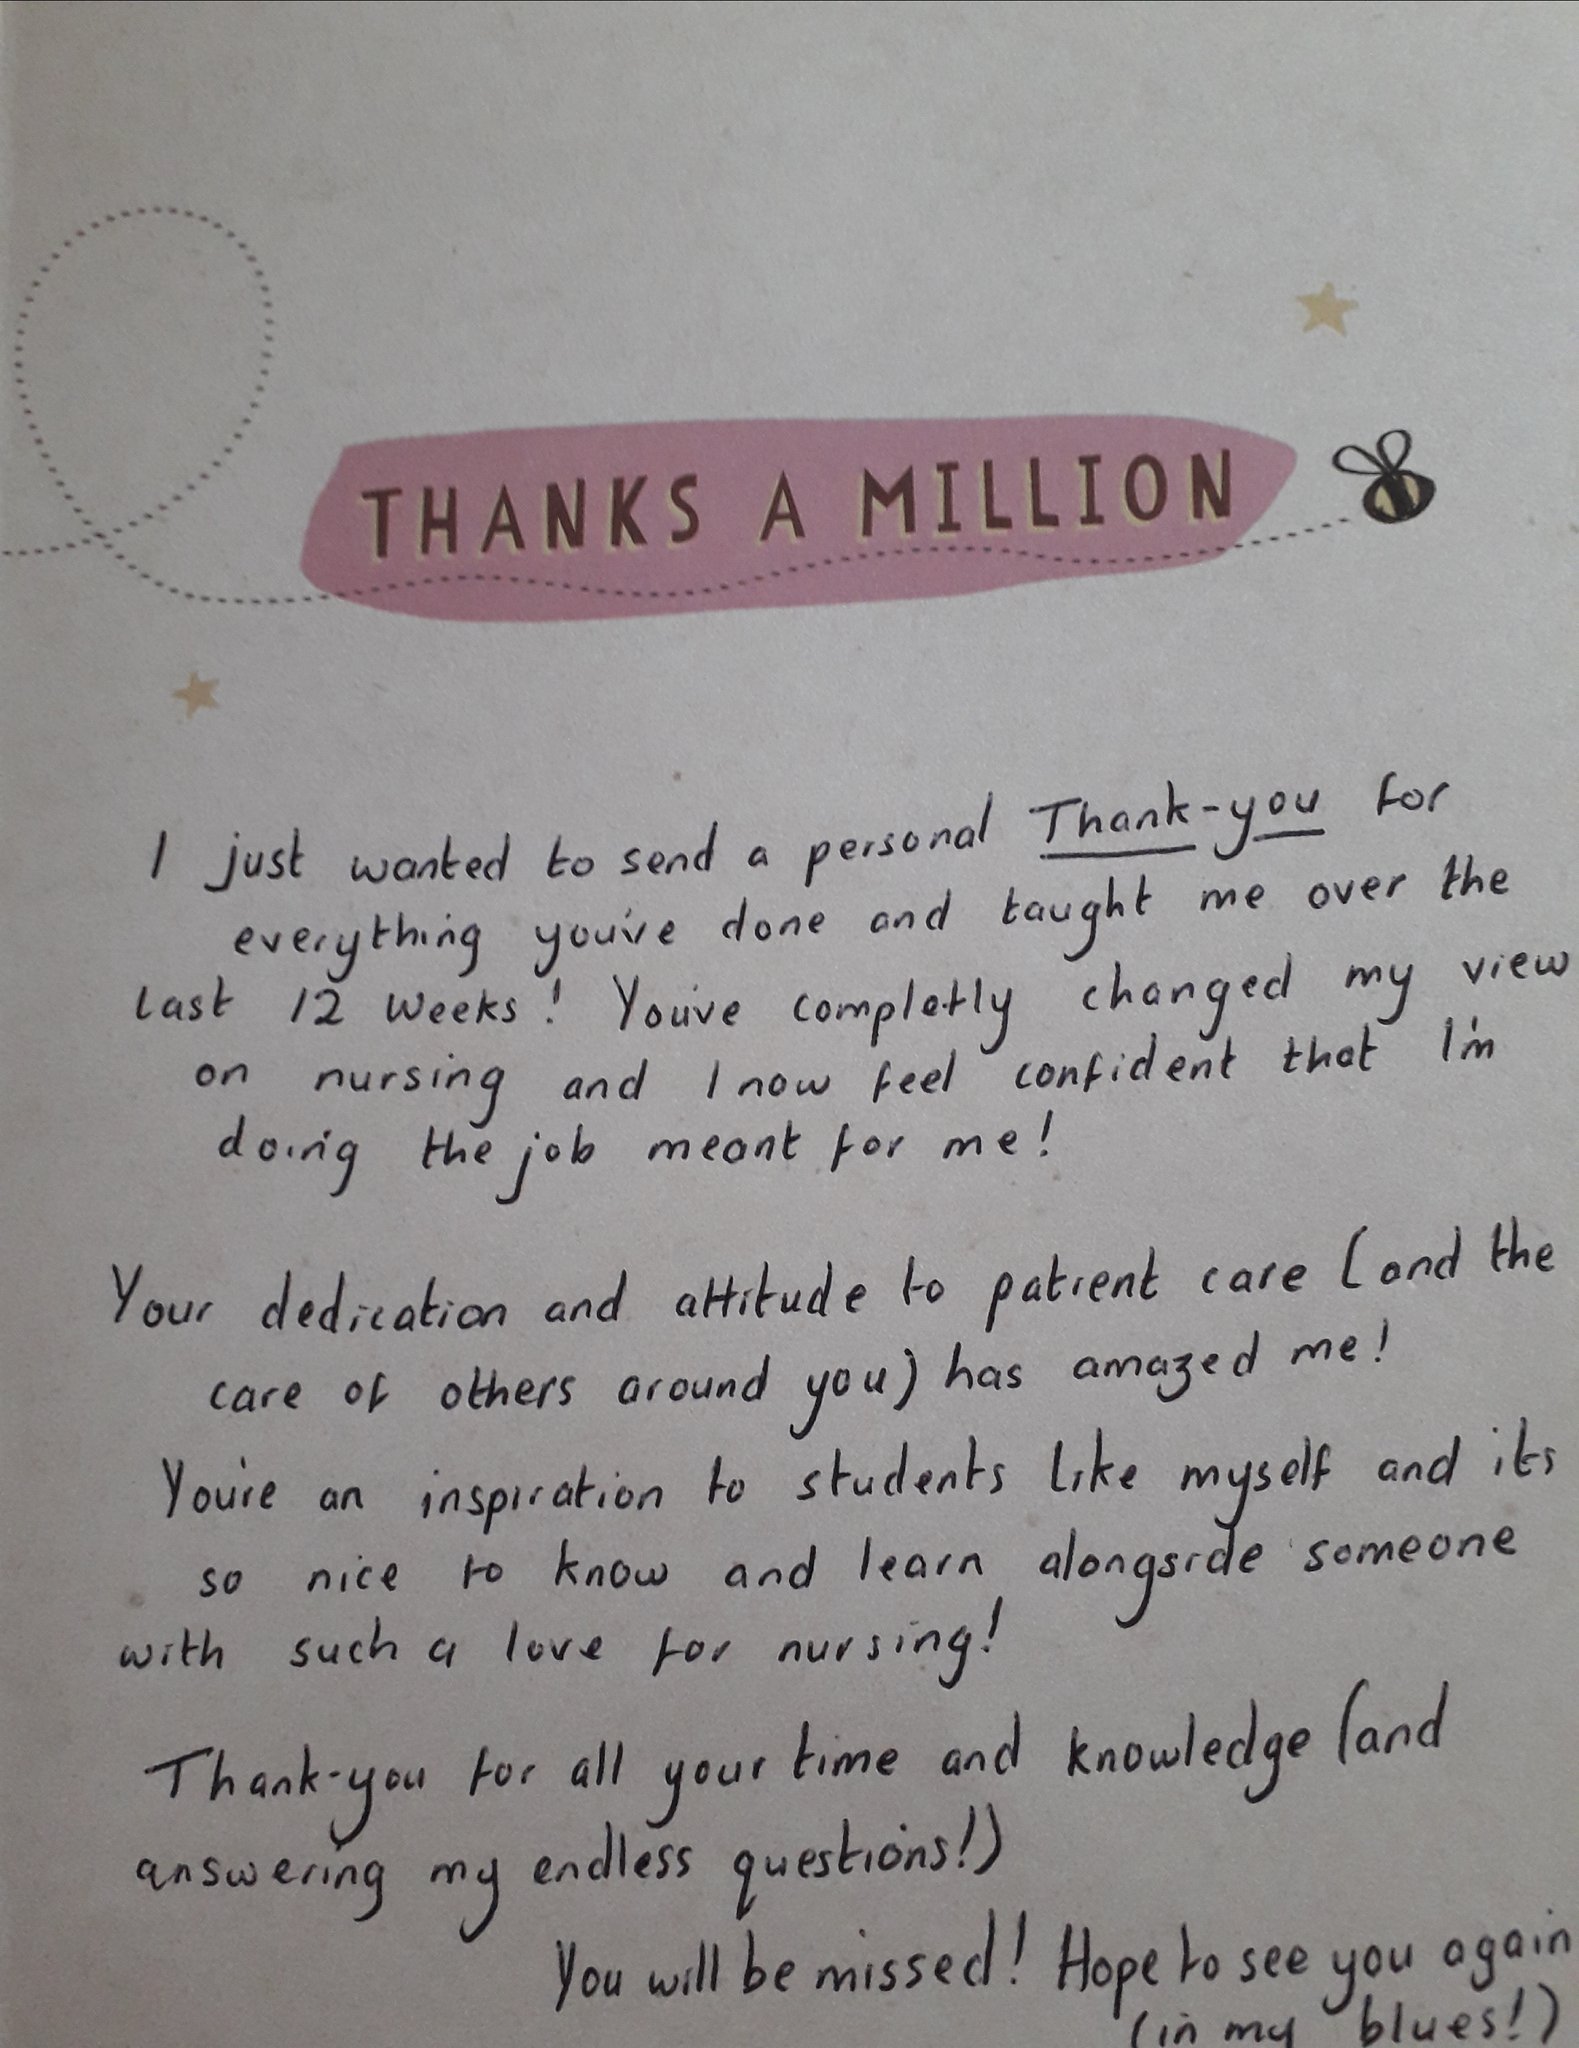 THANKS A MILLION
I just wanted to send a personal Thank-you for
everything you've done and taught me over the
last 12 weeks! You've completly changed my view
on nursing and I now feel confident that I'm
doing the job meant for me!
Your dedication and attitude to patient care (and the
care of others around you) has amazed me!
You're an inspiration to students like myself and its
so nice to know and learn alongside someone
with such a love for nursing!
Thank-you for all your time and knowledge (and
answering my endless questions!)
You will be missed! Hope to see you again
(in my blues!)